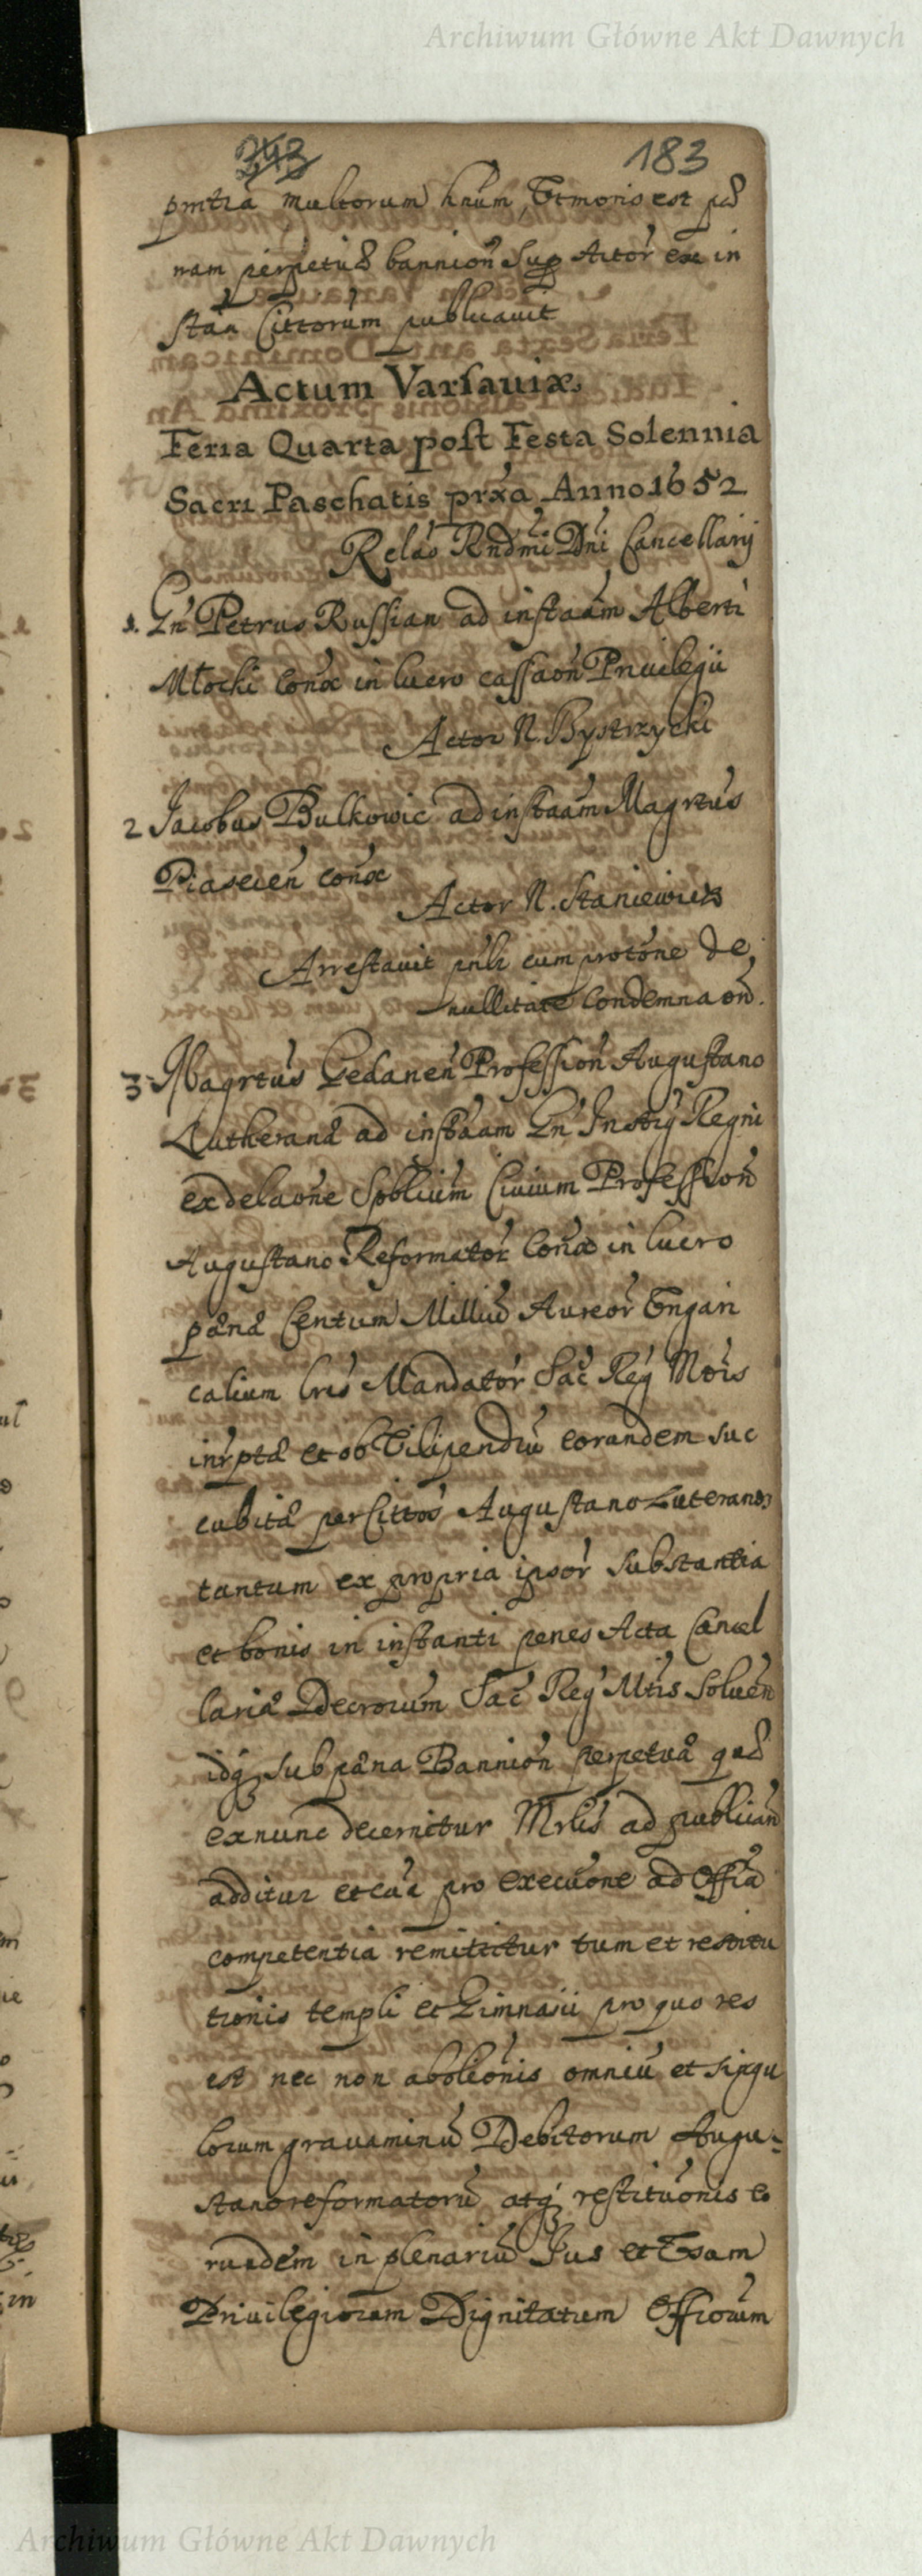 Archiwum Główne Akt Dawnych
343 183
pntia multorum hnum, Et moris est pæ
nam perpetuæ bannion Sup Actor ex in
stan Cittorum publicavit
Actum Varsaviæ
Feria Quarta post Festa Solennia
Sacri Paschatis prxa Anno 1652
Relao Rndmi Dni Cancellarij
1. Gn Petrus Russian ad instaam Alberti
Młocki conæ in lucro cassaon Privilegii
Actor N. Bystrzycki
2 Jacobus Bulkowic ad instaam Magrtus
Piasecen conæ
Actor N. Staniewicz
Arrestavit pnli cum protone de
nullitate Condemnaon.
3. Magrtus Gedanen Profession Augustano
Lutheranæ ad instaam Gn Instig Regni
ex delaone Spblium Civium Profession
Augustano Reformator Conæ in lucro
pænæ Centum Milliu Aureor Ungari
calium lris Mandator Sac Reg Mtis
inrptæ et ob Vilipendiu eorandem suc
cubitæ per Cittos Augustano Luteranos
tantum ex propria ipsor substantia
et bonis in instanti penes Acta Cancel
lariæ Decrorum Sac Reg Mtis Solven
idq sub pæna Bannion perpetuæ quæ
exnunc decernitur Mrlis ad publican
additur et ea pro execuone ad Offia
competentia remittitur tum et restitu
tionis templi et Gimnasii pro quo res
est nec non abolionis omniu et singu
lorum gravaminu Debitorum Augu-
stanoreformatoru atq restituonis eo
rundem in plenariu Jus et Usam
Privilegiorum Dignitatum Offiorum
Archiwum Główne Akt Dawnych